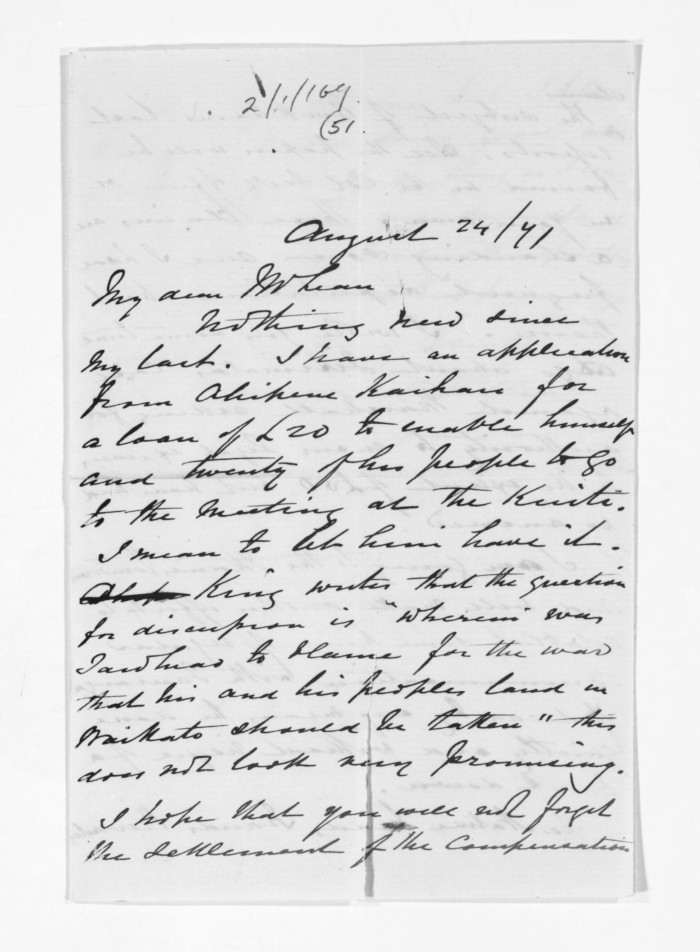 2/1/169
(51.
August 24/71
My dear McLean
Nothing new since
my last. I have an application
from Ahipene Kaihau for
a loan of £20 to enable himself
and twenty of his people to go
to the meeting at the Kuiti.
I mean to let him have it.
King writes that the question
for discussion is "wherein was
Tawhiao to blame for the war
that his and his peoples land in
Waikato should be taken" this
does not look very promising.
I hope that you will not forget
the settlement of the Compensation